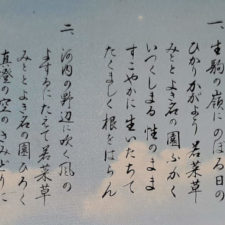 一、生駒の嶺にのぼる日の
ひかりかがよう若菜草
みとよき石の園ふかく
いつくしまる性のまま
すこやかに生いたちて
たくましく根をはらん
二、河内の野辺に吹く風の
よするにたえて若菜草
みとよき石の園ひろく
真澄の空のきみどりに